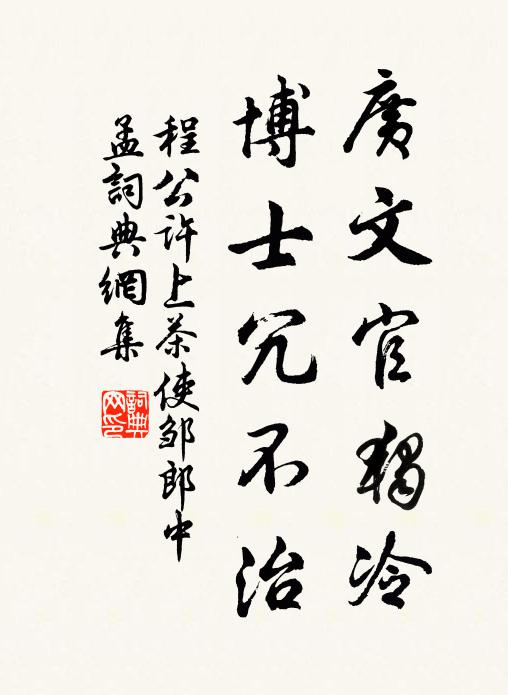 廣文官獨冷
博士冗不治
程公許上茶使邹郎中
孟詞典網集
詞典
网印